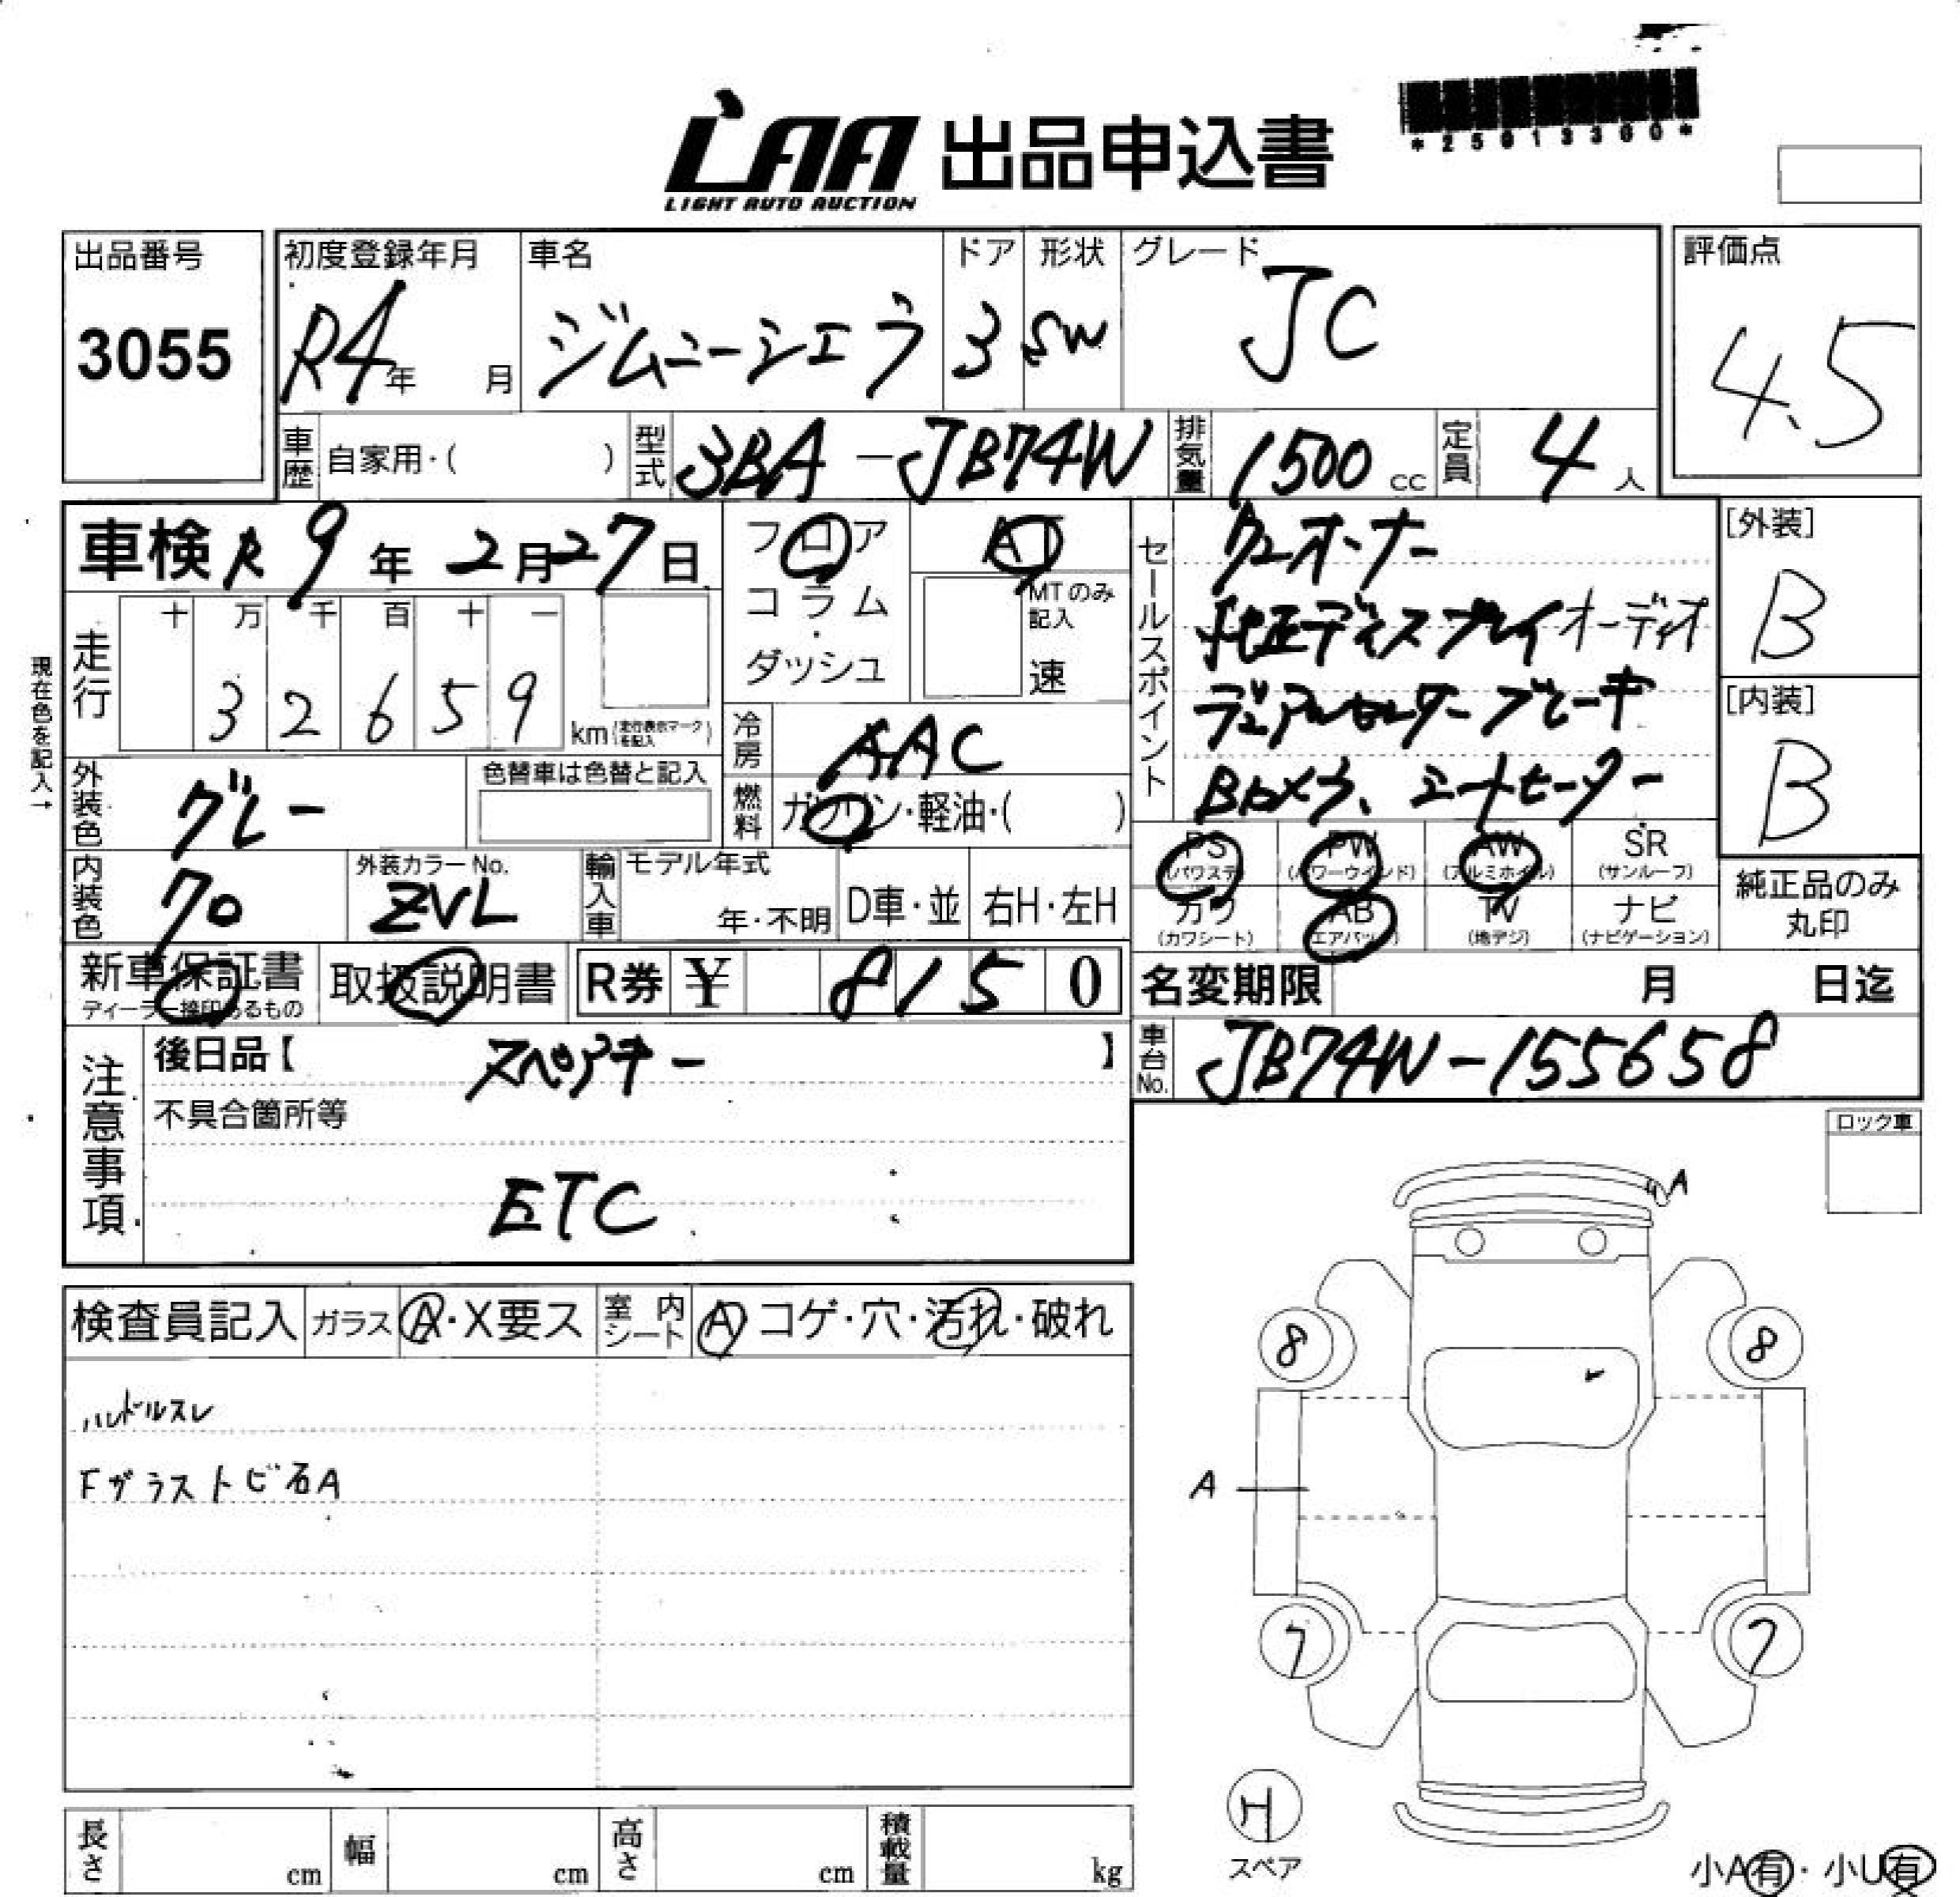 LAA 出品申込書
LIGHT AUTO AUCTION
*25013300*
出品番号 3055
初度登録年月 R4年 月
車名 ジムニーシエラ
ドア 3
形状 SW
グレード JC
評価点 4.5
車歴 自家用・( )
型式 3BA-JB74W
排気量 1500 cc
定員 4 人
車検 R9年 2月27日
フロア
コラム
ダッシュ
AT
MTのみ記入
速
セールスポイント
ワンオーナー
純正ディスプレイオーディオ
デュアルセンサーブレーキ
Bカメラ、シートヒーター
[外装] B
[内装] B
現在色を記入→
走行
十 万 千 百 十 一
3 2 6 5 9
km(走行表示マークを記入)
冷房 AAC
燃料 ガソリン・軽油・( )
外装色 グレー
色替車は色替と記入
内装色 クロ
外装カラーNo. ZVL
輸入車 モデル年式
年・不明
D車・並
右H・左H
PS (パワステ)
PW (パワーウインド)
AW (アルミホイル)
SR (サンルーフ)
カワ (カワシート)
AB (エアバッグ)
TV (地デジ)
ナビ (ナビゲーション)
純正品のみ丸印
新車保証書
ディーラー捺印あるもの
取扱説明書
R券 ¥ 8150
名変期限 月 日迄
注意事項
後日品【 スペアキー 】
不具合箇所等
ETC
車台No. JB74W-155658
ロック車
検査員記入
ガラス A・X要ス
室内シート A コゲ・穴・汚れ・破れ
ハンドルスレ
Fガラストビ石A
A
8 8
A
7 7
スペア
小A有・小U有
長さ cm
幅 cm
高さ cm
積載量 kg